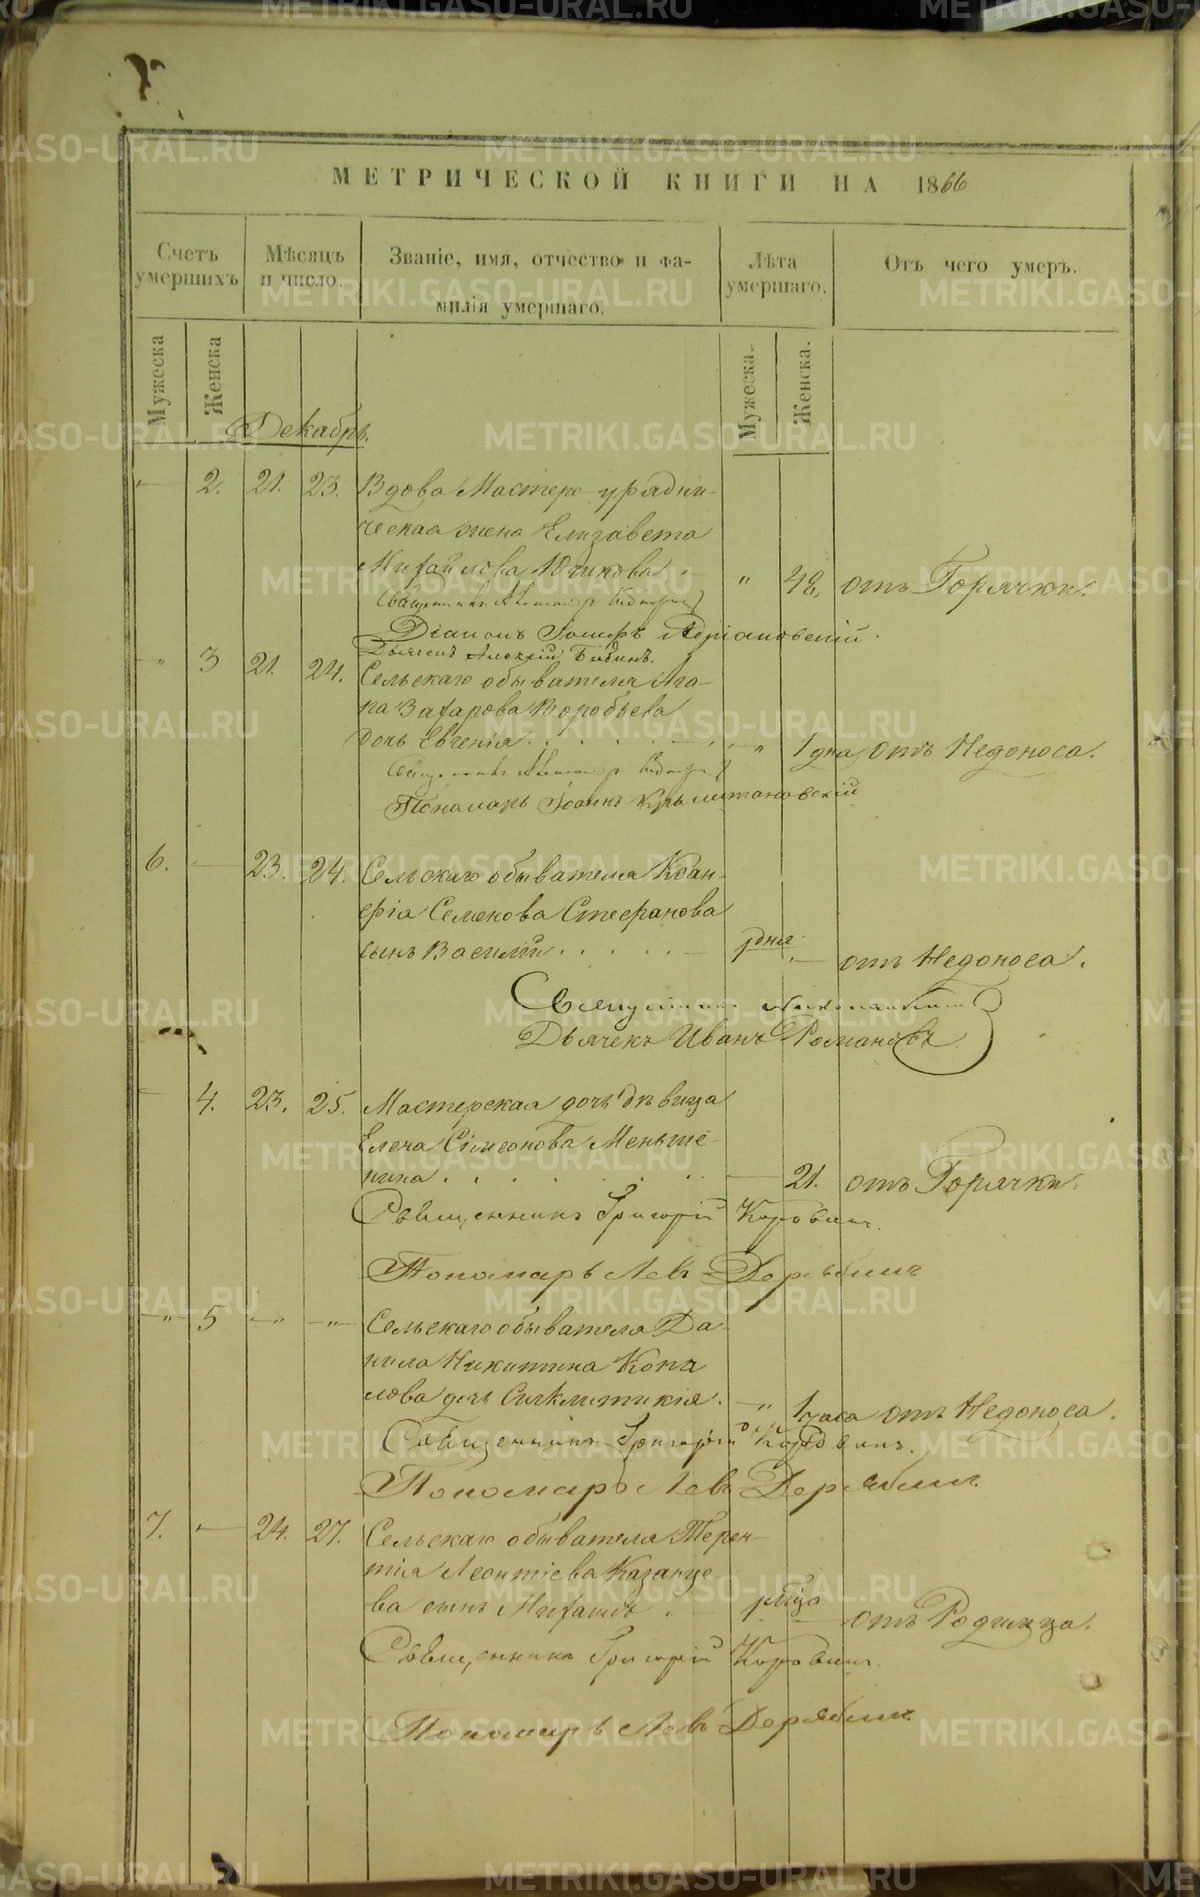 МЕТРИЧЕСКОЙ КНИГИ НА 1866
Счетъ умершихъ
Мѣсяцъ и число.
Званіе, имя, отчество и фа-
милія умершаго.
Лѣта умершаго.
Отъ чего умеръ.
Мужеска
Женска
Мужеска.
Женска.
Декабрь.
2. 21. 23. Вдова Мастеро-урядни-
ческая жена Елизавета
Михайлова " 48, отъ Горячки.
Священникъ Александр
Діаконъ Іосифъ Адріановскій.
Дьячекъ Алексій Бибинъ.
" 3 21. 24. Сельскаго обывателя Ага-
па Захарова Воробьева
дочь Евгенія " 1 дня отъ Недоноса.
Священникъ Александр
Пономарь Іоаннъ
6. — 23. 24. Сельскаго обывателя Ксан-
ефія Семенова Стефанова
сынъ Василій — дня — отъ Недоноса.
Священникъ
Дьячекъ Иванъ Романовъ
4. 23. 25. Мастерская дочь дѣвица
Елена Сімеонова Меньше-
нина — 21. отъ Горячки.
Священникъ Григорій Коровинъ.
Пономарь Левъ Дерябинъ
—"— 5 —"— —"— Сельскаго обывателя Да-
нила Никитина Копа
лова дочь Синклитикія. —" 1 часа отъ Недоноса.
Священникъ Григорій Коровинъ.
Пономарь Левъ Дерябинъ.
7. — 24. 27. Сельскаго обывателя Терен-
тія Леонтіева Казанце
ва сынъ Михаилъ — отъ Родимца.
Священникъ Григорій Коровинъ.
Пономарь Левъ Дерябинъ
METRIKI.GASO-URAL.RU